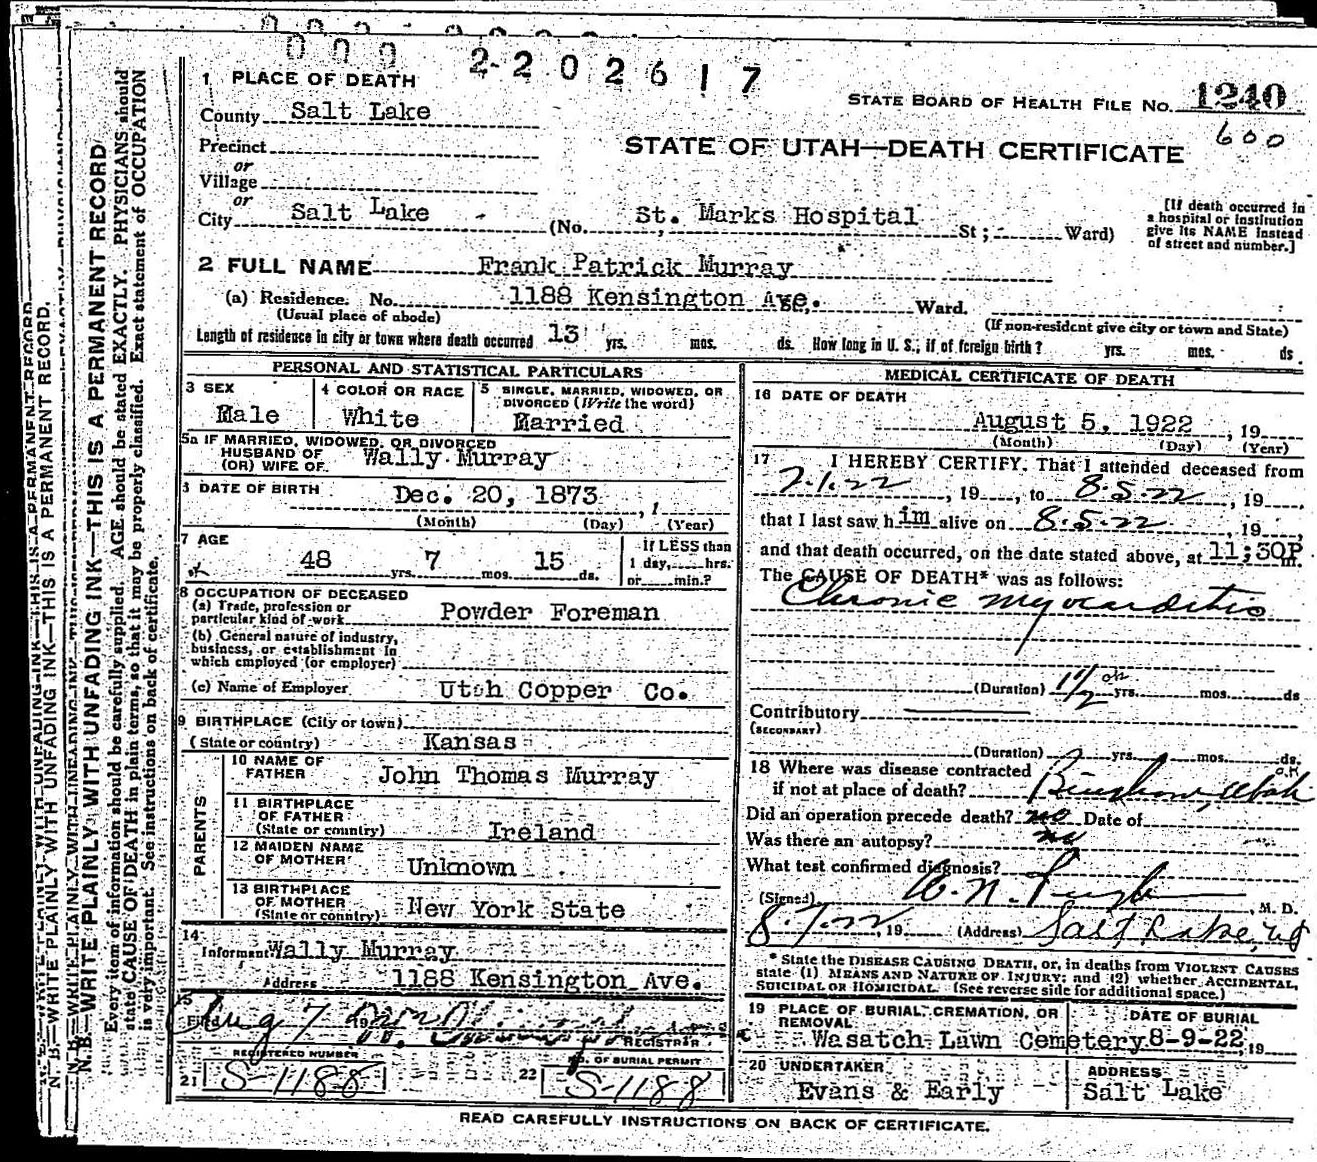 2202617
1 PLACE OF DEATH
STATE BOARD OF HEALTH FILE No. 1240
600
County Salt Lake
STATE OF UTAH—DEATH CERTIFICATE
Precinct
or
Village
or
City Salt Lake (No. St. Marks Hospital St; Ward)
[If death occurred in
a hospital or institution
give its NAME instead
of street and number.]
2 FULL NAME Frank Patrick Murray
(a) Residence. No. 1188 Kensington Ave. Ward.
(Usual place of abode) (If non-resident give city or town and State)
Length of residence in city or town where death occurred 13 yrs. mos. ds. How long in U. S., if of foreign birth? yrs. mos. ds.
PERSONAL AND STATISTICAL PARTICULARS
3 SEX
Male
4 COLOR OR RACE
White
5 SINGLE, MARRIED, WIDOWED, OR
DIVORCED (Write the word)
Married
5a IF MARRIED, WIDOWED, OR DIVORCED
HUSBAND OF
(OR) WIFE OF
Wally Murray
DATE OF BIRTH Dec. 20, 1873, 1
(Month) (Day) (Year)
7 AGE
48 yrs. 7 mos. 15 ds.
If LESS than
1 day, hrs.
or min.?
8 OCCUPATION OF DECEASED
(a) Trade, profession or
particular kind of work Powder Foreman
(b) General nature of industry,
business, or establishment in
which employed (or employer)
(c) Name of Employer Utah Copper Co.
9 BIRTHPLACE (City or town)
(State or country) Kansas
PARENTS
10 NAME OF
FATHER John Thomas Murray
11 BIRTHPLACE
OF FATHER
(State or country) Ireland
12 MAIDEN NAME
OF MOTHER Unknown
13 BIRTHPLACE
OF MOTHER
(State or country) New York State
14
Informant Wally Murray
Address 1188 Kensington Ave.
15
Filed Aug 7 19
REGISTRAR
REGISTERED NUMBER
21 S-1188
NO. OF BURIAL PERMIT
22 S-1188
MEDICAL CERTIFICATE OF DEATH
16 DATE OF DEATH
August 5, 1922, 19
(Month) (Day) (Year)
17 I HEREBY CERTIFY, That I attended deceased from
7.1.22, 19, to 8.5.22, 19
that I last saw him alive on 8.5.22, 19
and that death occurred, on the date stated above, at 11;30P m.
The CAUSE OF DEATH* was as follows:
Chronic myocarditis
(Duration) 1 1/2 yrs. mos. ds
Contributory
(SECONDARY)
(Duration) yrs. mos. ds.
18 Where was disease contracted
if not at place of death? Bingham, Utah
Did an operation precede death? no Date of
Was there an autopsy? no
What test confirmed diagnosis?
(Signed), M. D.
8.7.22, 19 (Address) Salt Lake, Ut
* State the DISEASE CAUSING DEATH, or, in deaths from VIOLENT CAUSES
state (1) MEANS AND NATURE OF INJURY; and (2) whether ACCIDENTAL,
SUICIDAL OR HOMICIDAL. (See reverse side for additional space.)
19 PLACE OF BURIAL, CREMATION, OR
REMOVAL
Wasatch Lawn Cemetery
DATE OF BURIAL
8-9-22, 19
20 UNDERTAKER
Evans & Early
ADDRESS
Salt Lake
READ CAREFULLY INSTRUCTIONS ON BACK OF CERTIFICATE.
N. B.—WRITE PLAINLY WITH UNFADING INK—THIS IS A PERMANENT RECORD.
N. B.—WRITE PLAINLY WITH UNFADING INK—THIS IS A PERMANENT RECORD
Every item of information should be carefully supplied. AGE should be stated EXACTLY. PHYSICIANS should
state CAUSE OF DEATH in plain terms, so that it may be properly classified. Exact statement of OCCUPATION
is very important. See instructions on back of certificate.